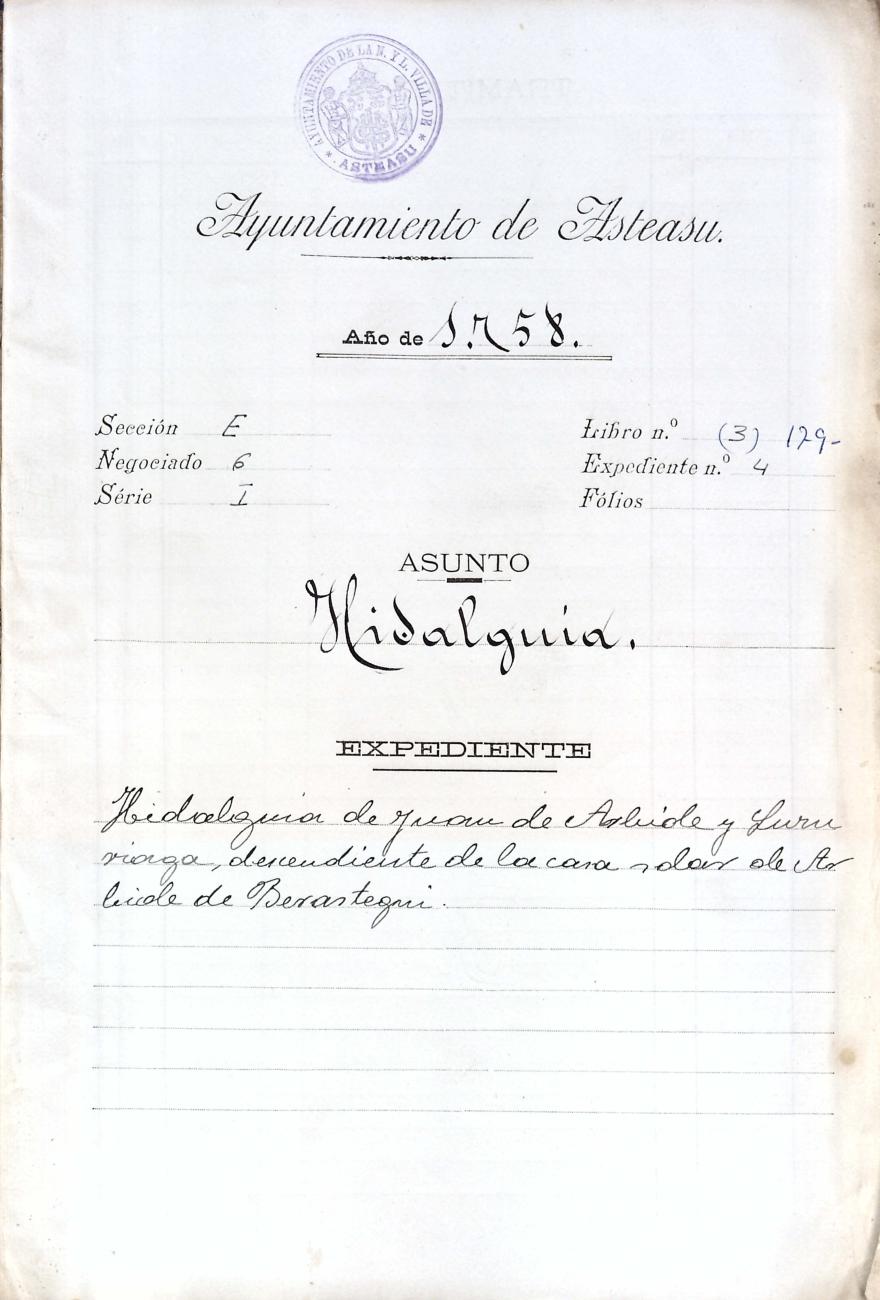 AYUNTAMIENTO DE LA N. Y L. VILLA DE
* ASTEASU *
Ayuntamiento de Asteasu.
Año de 1.758.
Sección E
Libro n.º (3) 129-
Negociado 6
Expediente n.º 4
Série I
Fólios
ASUNTO
Hidalguia.
EXPEDIENTE
Hidalguia de Juan de Arbide y Lurru
riaga, descendiente de la casa solar de Ar
bide de Berastegui.